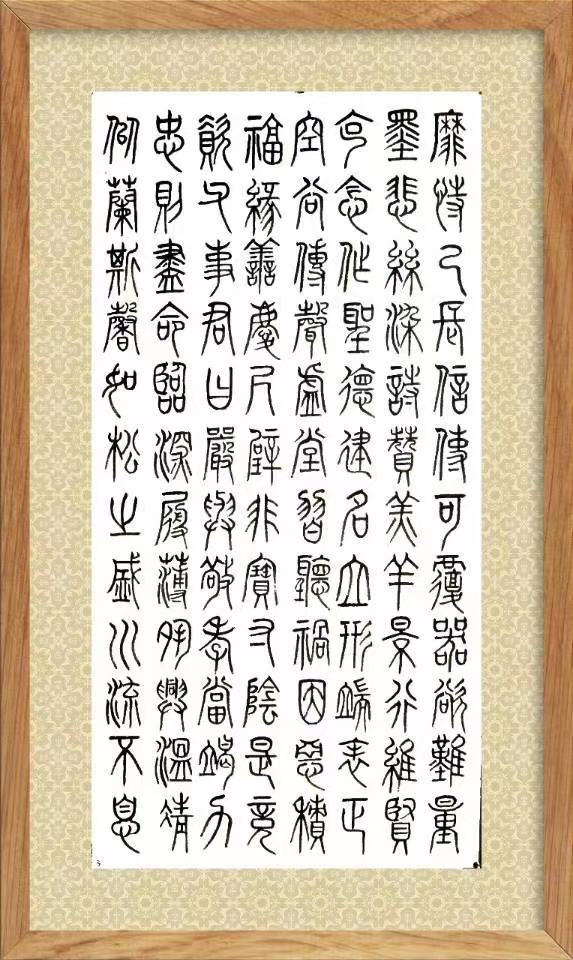 靡恃己長信使可覆器欲難量
墨悲絲染詩贊羔羊景行維賢
克念作聖德建名立形端表正
空谷傳聲虛堂習聽禍因惡積
福緣善慶尺璧非寶寸陰是競
資父事君曰嚴與敬孝當竭力
忠則盡命臨深履薄夙興溫凊
似蘭斯馨如松之盛川流不息